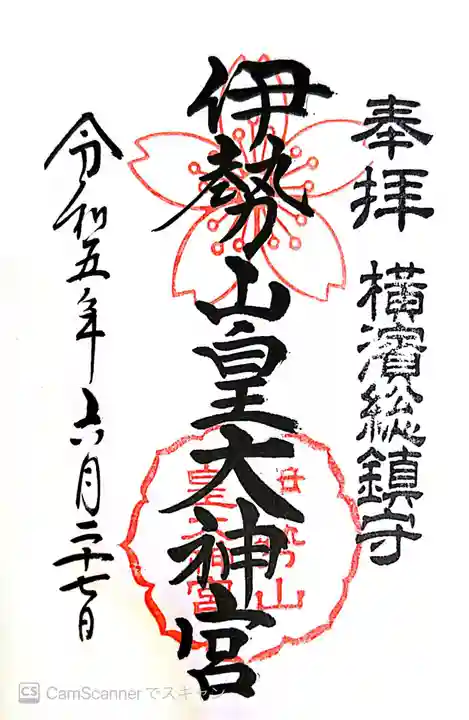 奉拝 横濱総鎮守
伊勢山皇大神宮
伊勢山
皇大神宮
令和五年六月二十七日
CS CamScannerでスキャン